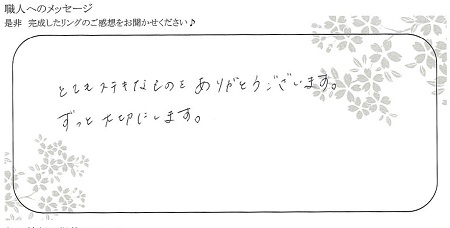 職人へのメッセージ
是非 完成したリングのご感想をお聞かせください♪
とてもステキなものをありがとうございます。
ずっと大切にします。